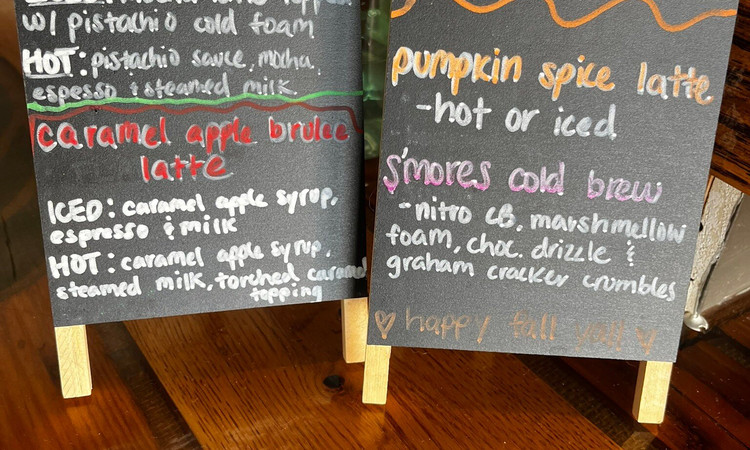 w/ pistachio cold foam
HOT: pistachio sauce, mocha,
espesso & steamed milk
caramel apple brulee
latte
ICED: caramel apple syrup,
espresso & milk
HOT: caramel apple syrup,
steamed milk, torched caramel
topping
pumpkin spice latte
-hot or iced
s'mores cold brew
-nitro CB, marshmallow
foam, choc. drizzle &
graham cracker crumbles
♡ happy fall yall ♡